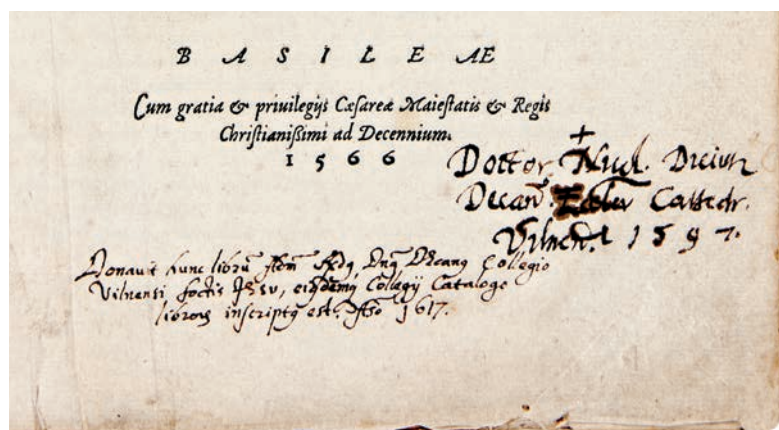 B A S I L E AE
Cum gratia & priuilegijs Cæsareæ Maiestatis & Regis
Christianißimi ad Decennium.
1 5 6 6
Doctor
Decan̄. Cathedr.
Vilnen. 1597.
Donauit hunc librū Dn̄s Decanꝯ Collegio
Vilnensi Soctis Jesu, eiusdemq Collegij Catalogo
inscriptꝯ est. 1617.